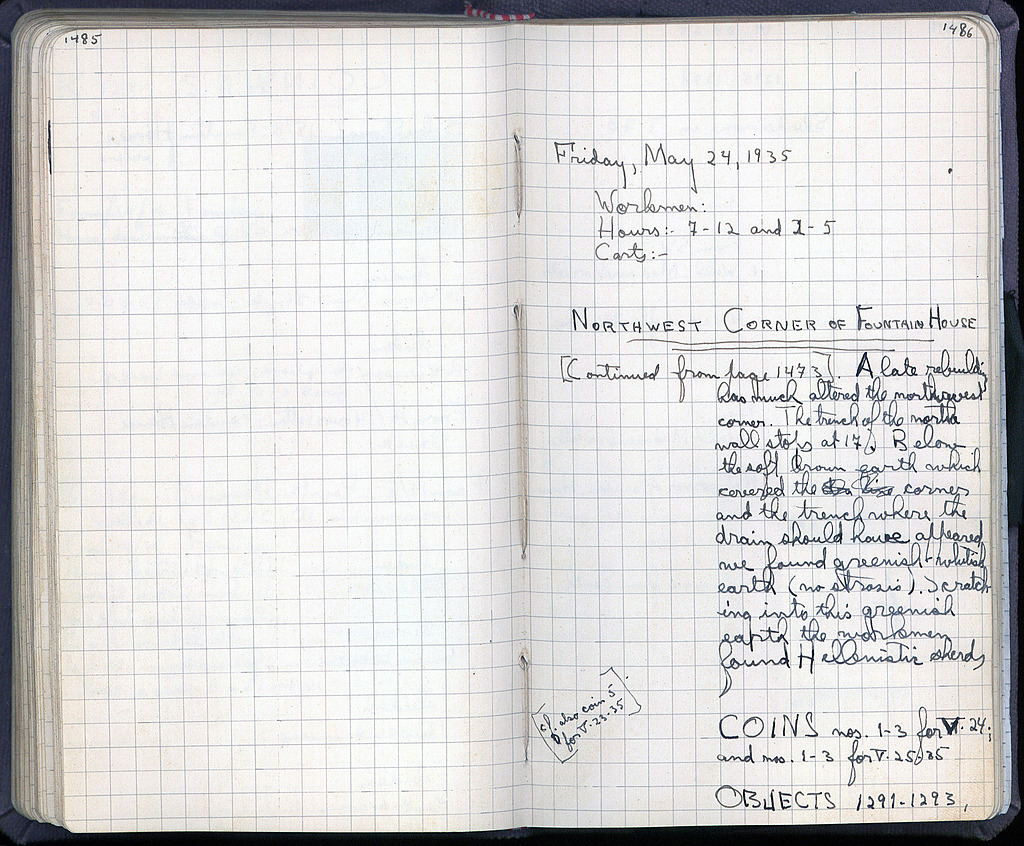 1485
1486
Friday, May 24, 1935
Workmen:
Hours:- 7-12 and 1-5
Carts:-
NORTHWEST CORNER OF FOUNTAIN HOUSE
[Continued from page 1473]. A late rebuilding
has much altered the northwest
corner. The trench of the north
wall stops at 17/. Below
the soft brown earth which
covered the corner
and the trench where the
drain should have appeared
we found greenish-whitish
earth (no strosis). Scratch-
ing into this greenish
earth the workmen
found Hellenistic sherds
cf. also coin 5
for V-23-35
COINS nos. 1-3 for V-24;
and nos. 1-3 for V-25-35
OBJECTS 1291-1293,